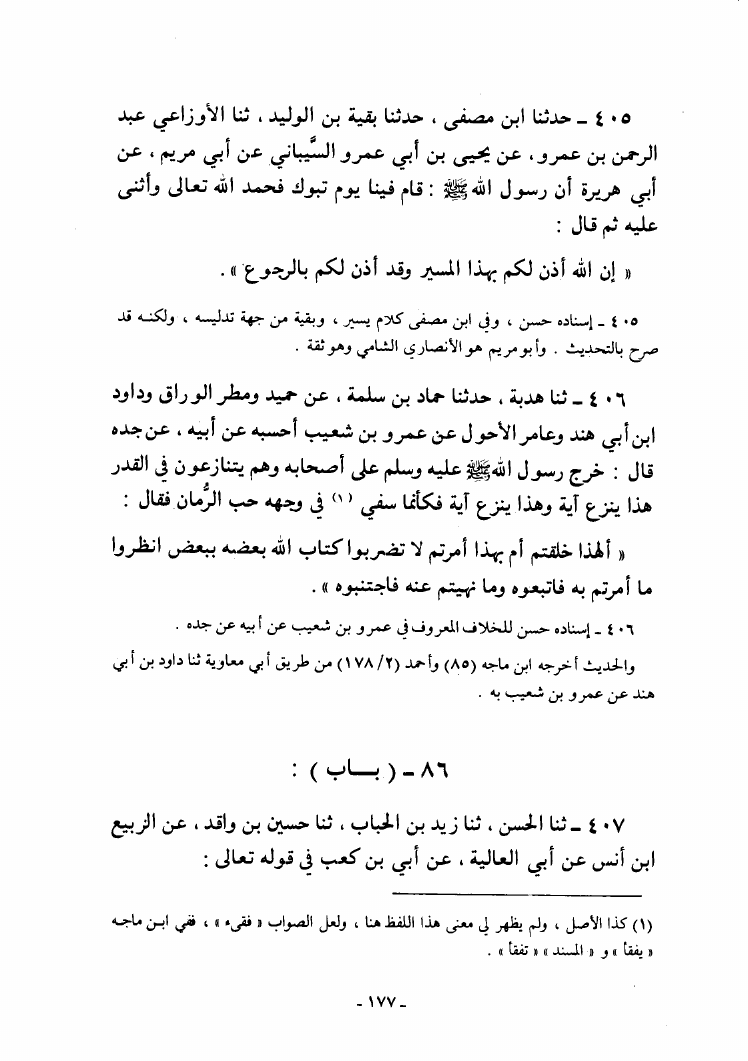 ٤٠٥ ـ حدثنا ابن مصفى ، حدثنا بقية بن الوليد ، ثنا الأوزاعي عبد
الرحمن بن عمرو ، عن يحيى بن أبي عمرو السَّيباني عن أبي مريم ، عن
أبي هريرة أن رسول الله ﷺ : قام فينا يوم تبوك فحمد الله تعالى وأثنى
عليه ثم قال :
« إن الله أذن لكم بهذا المسير وقد أذن لكم بالرجوع » .
٤٠٥ ـ إسناده حسن ، وفي ابن مصفى كلام يسير ، وبقية من جهة تدليسه ، ولكنه قد
صرح بالتحديث . وأبو مريم هو الأنصاري الشامي وهو ثقة .
٤٠٦ ـ ثنا هدبة ، حدثنا حماد بن سلمة ، عن حميد ومطر الوراق وداود
ابن أبي هند وعامر الأحول عن عمرو بن شعيب أحسبه عن أبيه ، عن جده
قال : خرج رسول الله ﷺ عليه وسلم على أصحابه وهم يتنازعون في القدر
هذا ينزع آية وهذا ينزع آية فكأنما سفي (١) في وجهه حب الرُّمان فقال :
« ألهذا خلقتم أم بهذا أمرتم لا تضربوا كتاب الله بعضه ببعض انظروا
ما أمرتم به فاتبعوه وما نهيتم عنه فاجتنبوه » .
٤٠٦ ـ إسناده حسن للخلاف المعروف في عمرو بن شعيب عن أبيه عن جده .
والحديث أخرجه ابن ماجه (٨٥) وأحمد (١٧٨/٢) من طريق أبي معاوية ثنا داود بن أبي
هند عن عمرو بن شعيب به .
٨٦ ـ ( بــاب ) :
٤٠٧ ـ ثنا الحسن ، ثنا زيد بن الحباب ، ثنا حسين بن واقد ، عن الربيع
ابن أنس عن أبي العالية ، عن أبي بن كعب في قوله تعالى :
(١) كذا الأصل ، ولم يظهر لي معنى هذا اللفظ هنا ، ولعل الصواب « فقىء » ، ففي ابن ماجه
« يفقأ » و « المسند » « تفقأ » .
ـ ١٧٧ ـ